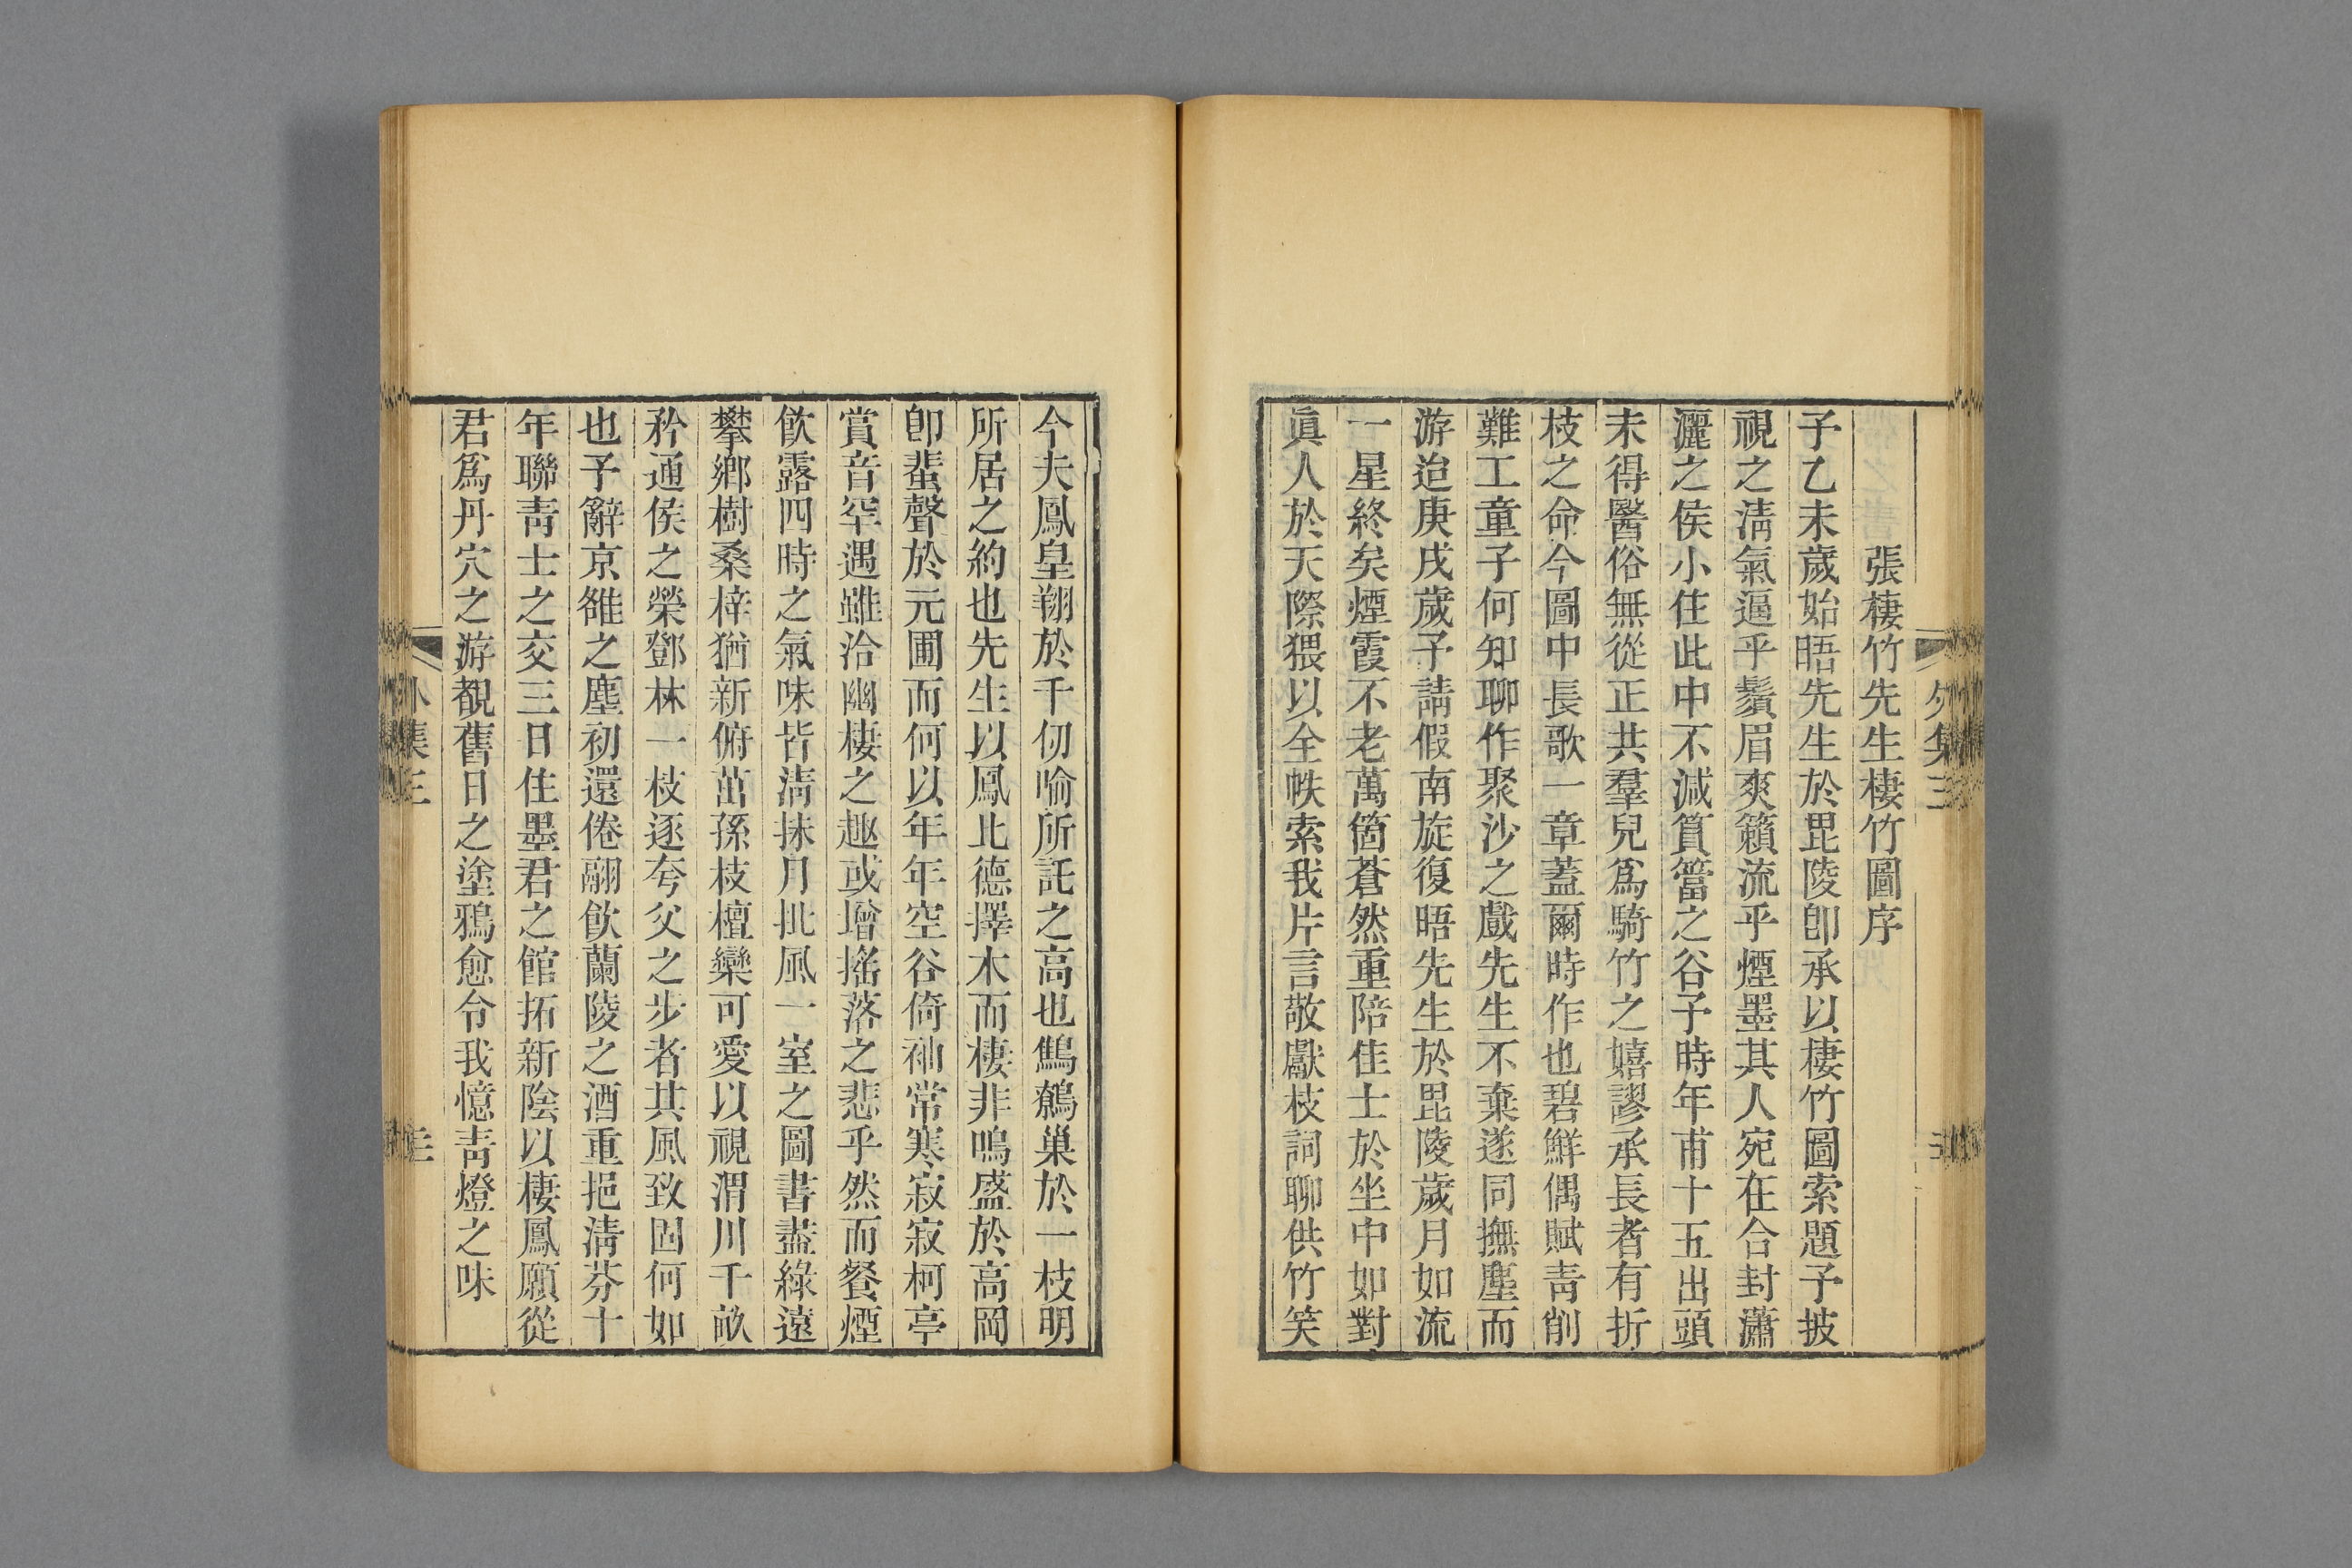 張棲竹先生棲竹圖序
予乙未歲始晤先生於毘陵卽承以棲竹圖索題予披
視之淸氣逼乎鬚眉爽籟流乎煙墨其人宛在合封瀟
灑之侯小住此中不減篔簹之谷予時年甫十五出頭
未得醫俗無從正共羣兒爲騎竹之嬉謬承長者有折
枝之命今圖中長歌一章蓋爾時作也碧鮮偶賦靑削
難工童子何知聊作聚沙之戲先生不棄遂同撫塵而
游迨庚戌歲予請假南旋復晤先生於毘陵歲月如流
一星終矣煙霞不老萬箇蒼然重陪佳士於坐中如對
眞人於天際猥以全帙索我片言敬獻枝詞聊供竹笑
今夫鳳皇翔於千仞喻所託之高也鷦鷯巢於一枝明
所居之約也先生以鳳比德擇木而棲非鳴盛於高岡
卽蜚聲於元圃而何以年年空谷倚袖常寒寂寂柯亭
賞音罕遇雖洽幽棲之趣或增搖落之悲乎然而餐煙
飮露四時之氣味皆淸抹月批風一室之圖書盡綠遠
攀鄉樹桑梓猶新俯茁孫枝檀欒可愛以視渭川千畝
矜通侯之榮鄧林一枝逐夸父之步者其風致固何如
也予辭京雒之塵初還倦翮飮蘭陵之酒重挹淸芬十
年聯靑士之交三日住墨君之館拓新陰以棲鳳願從
君爲丹穴之游覩舊日之塗鴉愈令我憶靑燈之味
外集三